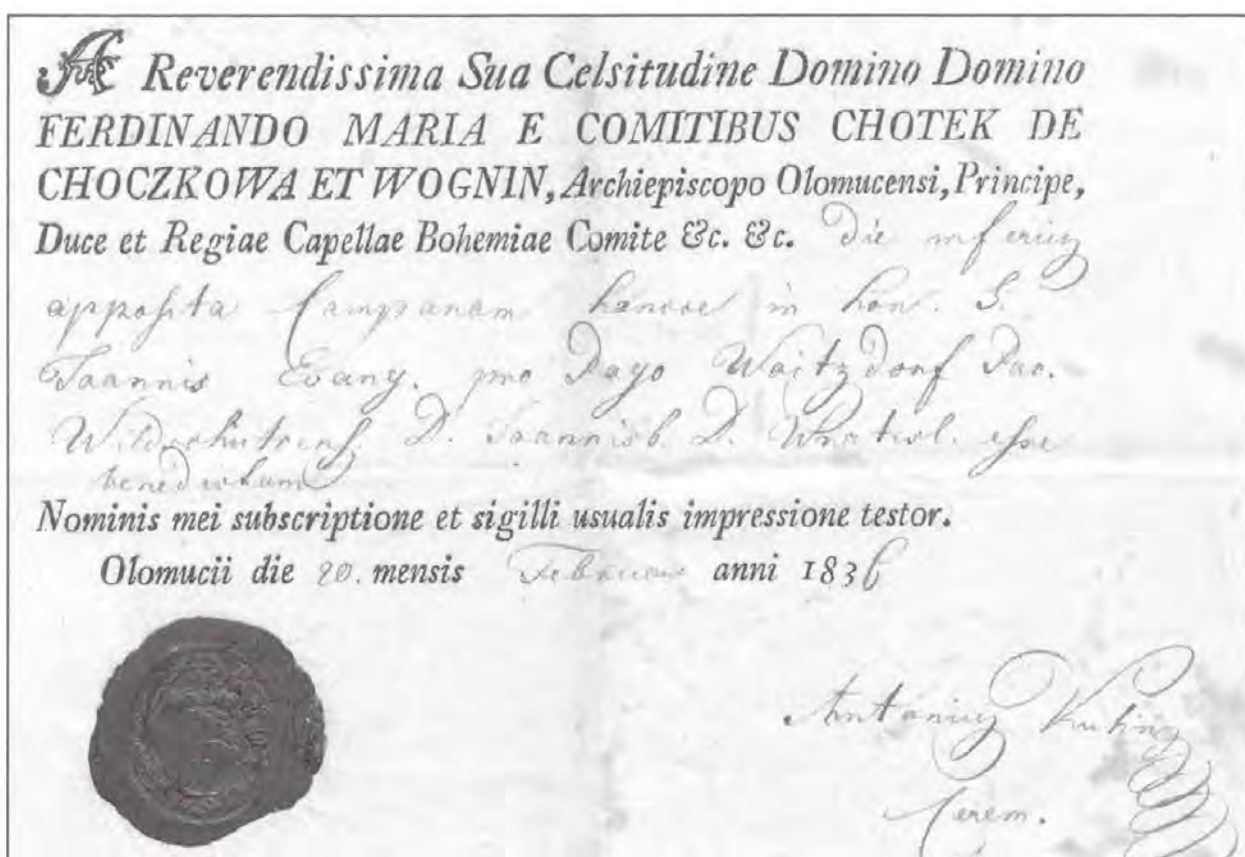 A Reverendissima Sua Celsitudine Domino Domino
FERDINANDO MARIA E COMITIBUS CHOTEK DE
CHOCZKOWA ET WOGNIN, Archiepiscopo Olomucensi, Principe,
Duce et Regiae Capellae Bohemiae Comite &c. &c. die inferius
apposita Campanam hancce in hon. S.
Joannis Evang. pro Pago Waitzdorf Par.
D. D. esse
benedictam
Nominis mei subscriptione et sigilli usualis impressione testor.
Olomucii die 20. mensis anni 1836
Antonius
Cerem.